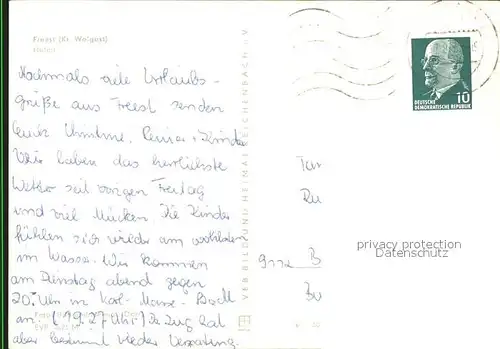 Freest (Kr. Wolgast)
Hafen
Nochmals viele Urlaubs-
grüße aus Freest senden
Kinder
Wir haben das herrlichste
Wetter seit vorigen Freitag
und viel Mücken. Die Kinder
fühlen sich wieder am wohlsten
im Wasser. Wir kommen
am Dienstag abend gegen
20. Uhr in Karl-Marx-
an. (19.27 Uhr) Der Zug hat
aber bestimmt wieder Verspätung.
VEB BILD UND HEIMAT REICHENBACH i. V.
10
DEUTSCHE
DEMOKRATISCHE REPUBLIK
Tan
Ru
9112 B
Bu
privacy protection
Datenschutz